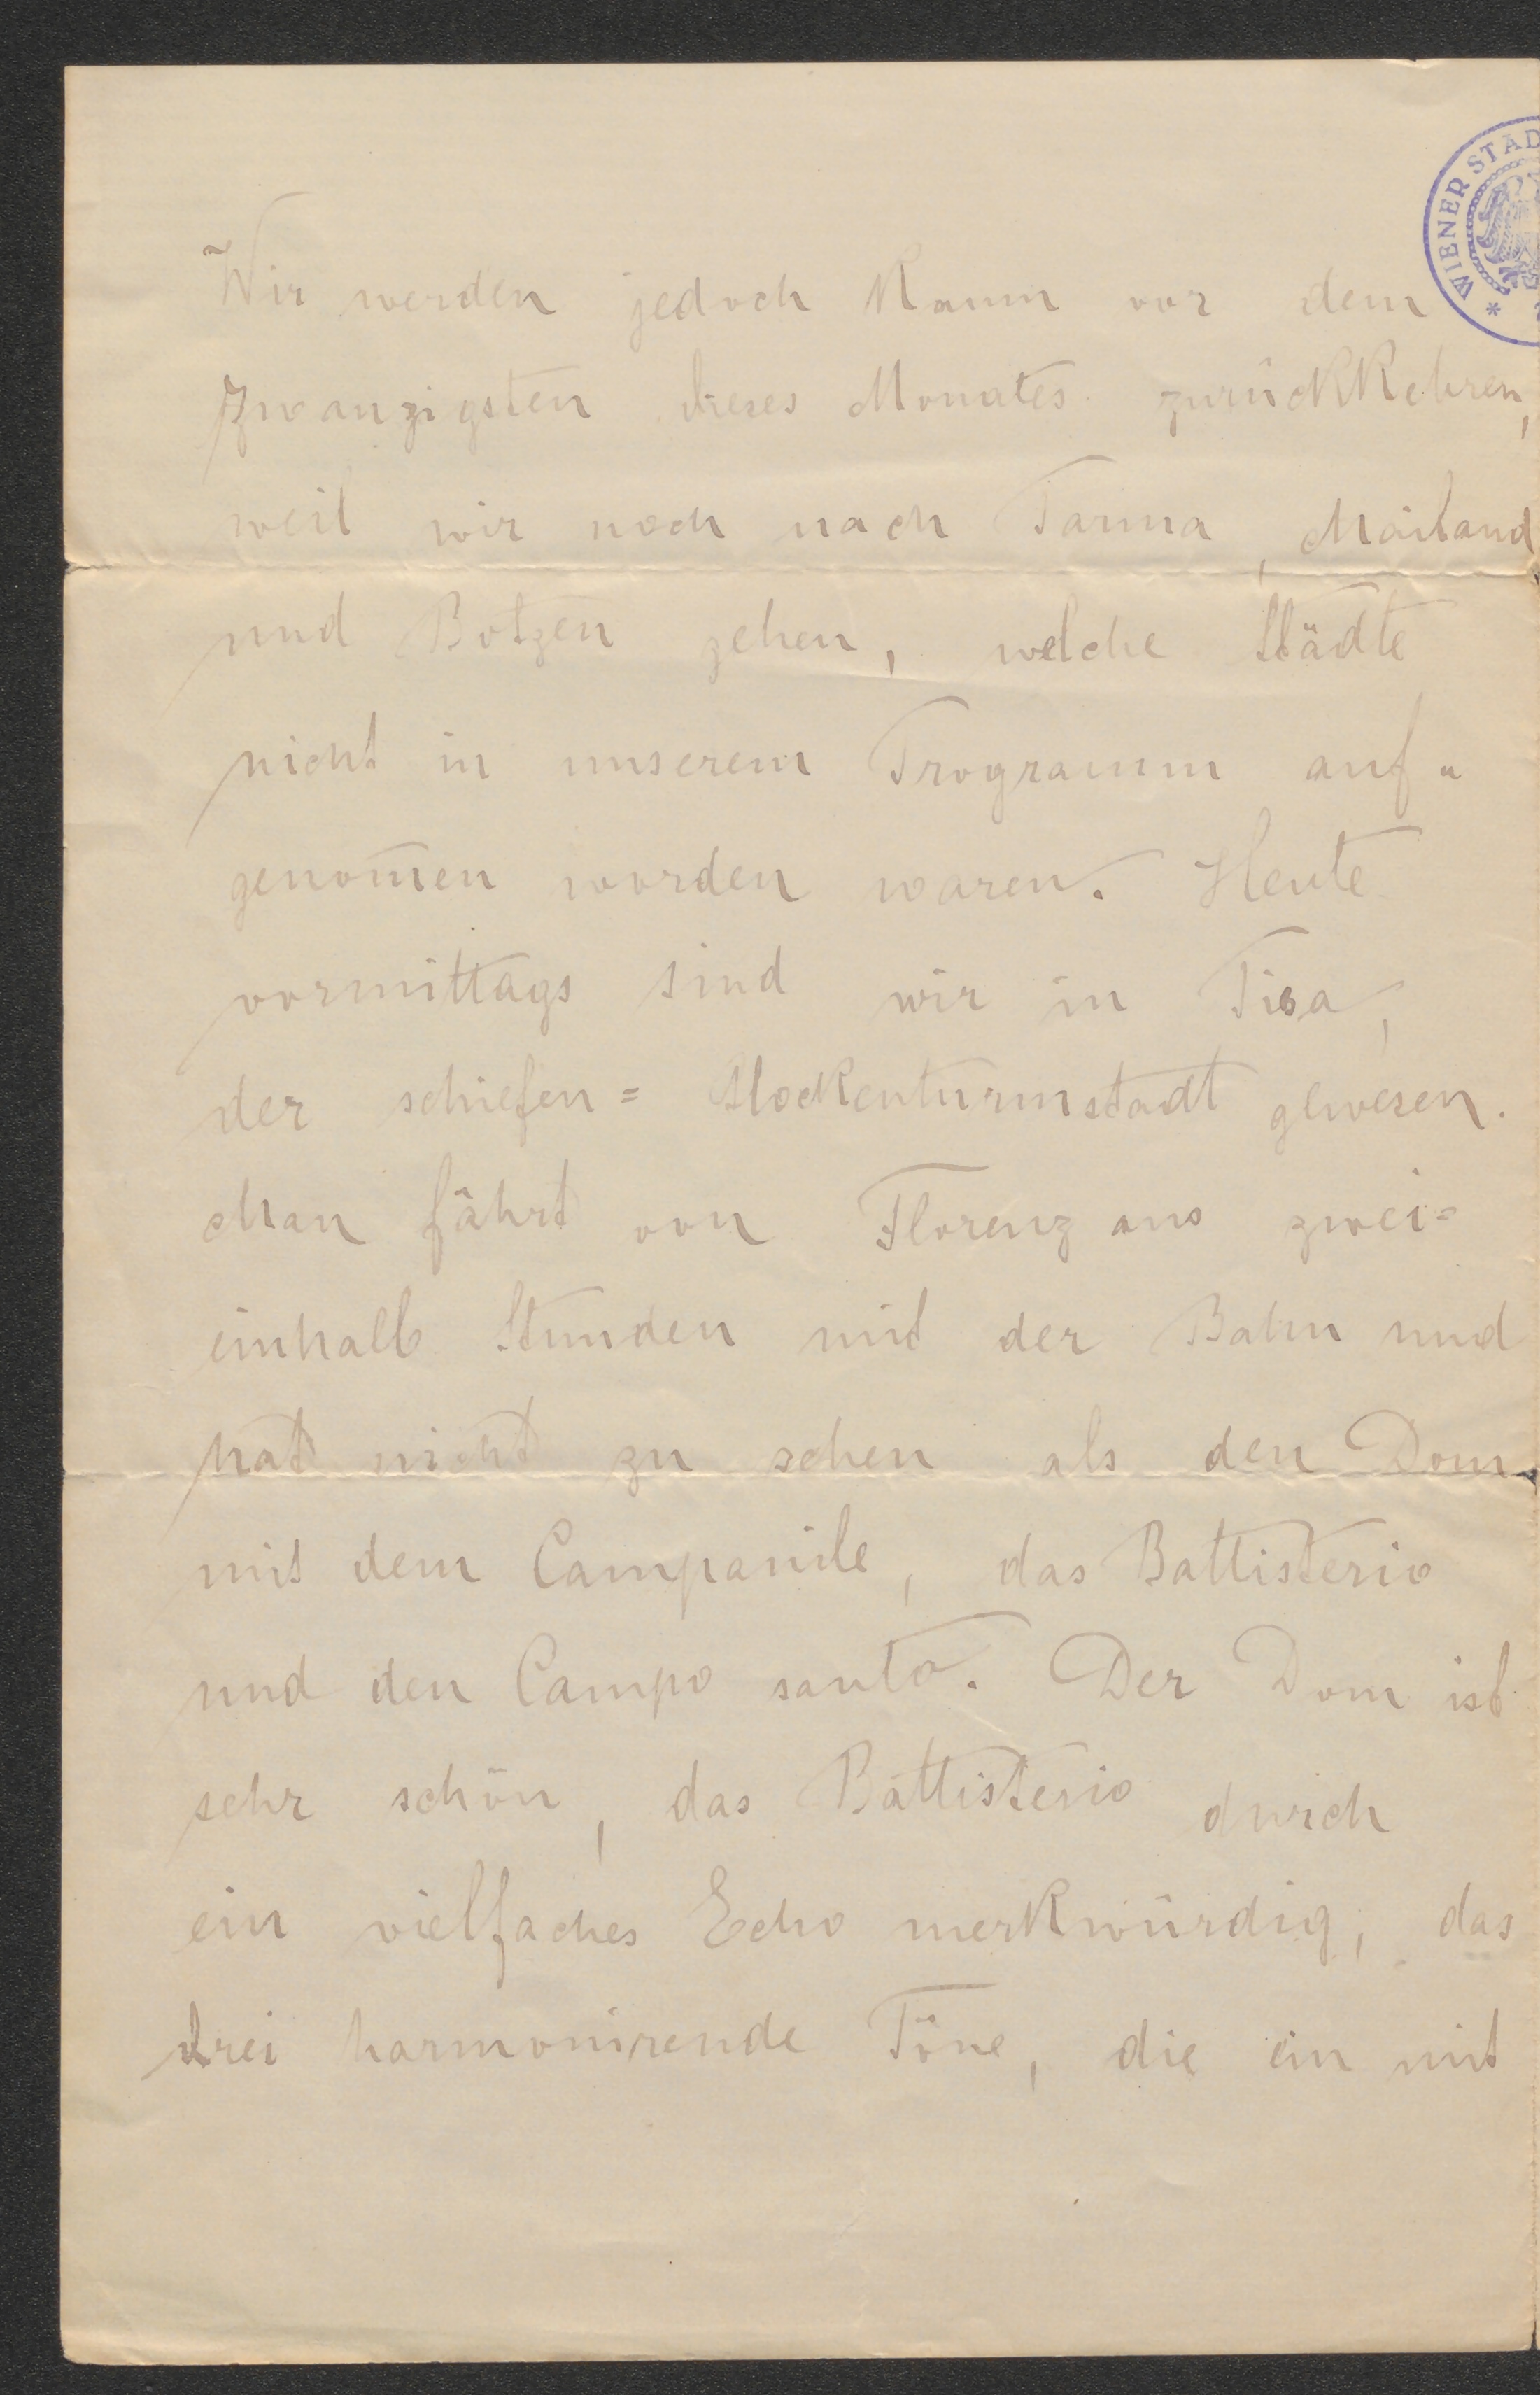 WIENER STÄD
Wir werden jedoch kaum vor dem
zwanzigsten dieses Monates zurückkehren,
weil wir noch nach Parma, Mailand
und Botzen gehen, welche Städte
nicht in unserem Programm auf=
genom̄en worden waren. Heute
vormittags sind wir in Pisa,
der schiefen= Glockenturmstadt gewesen.
Man fährt von Florenz aus zwei=
einhalb Stunden mit der Bahn und
hat nicht zu sehen als den Dom
mit dem Campanile, das Battisterio
und den Campo santo. Der Dom ist
sehr schön, das Battisterio durch
ein vielfaches Echo merkwürdig, das
drei harmonirende Töne, die ein mit